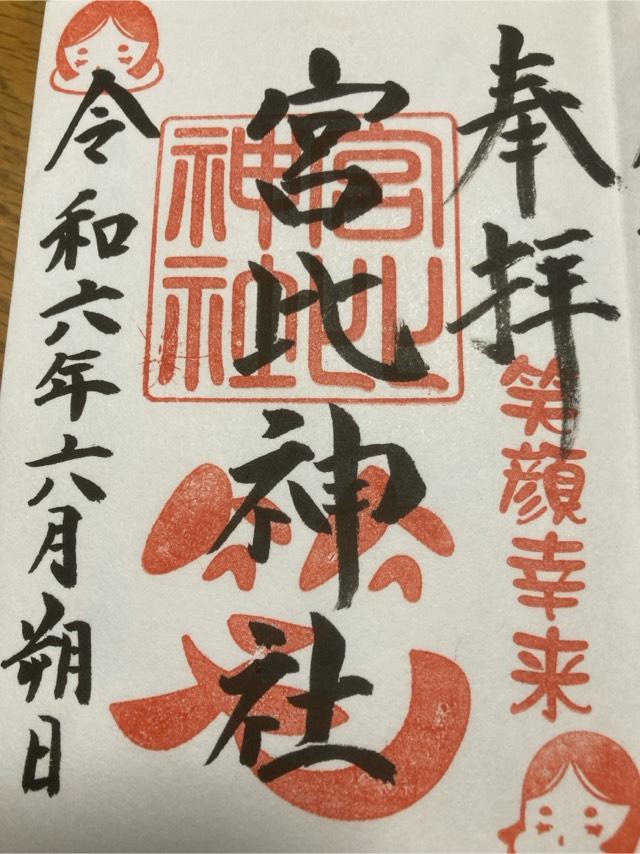 奉拝
笑顔幸来
宮比神社
宮比
神社
令和六年六月朔日